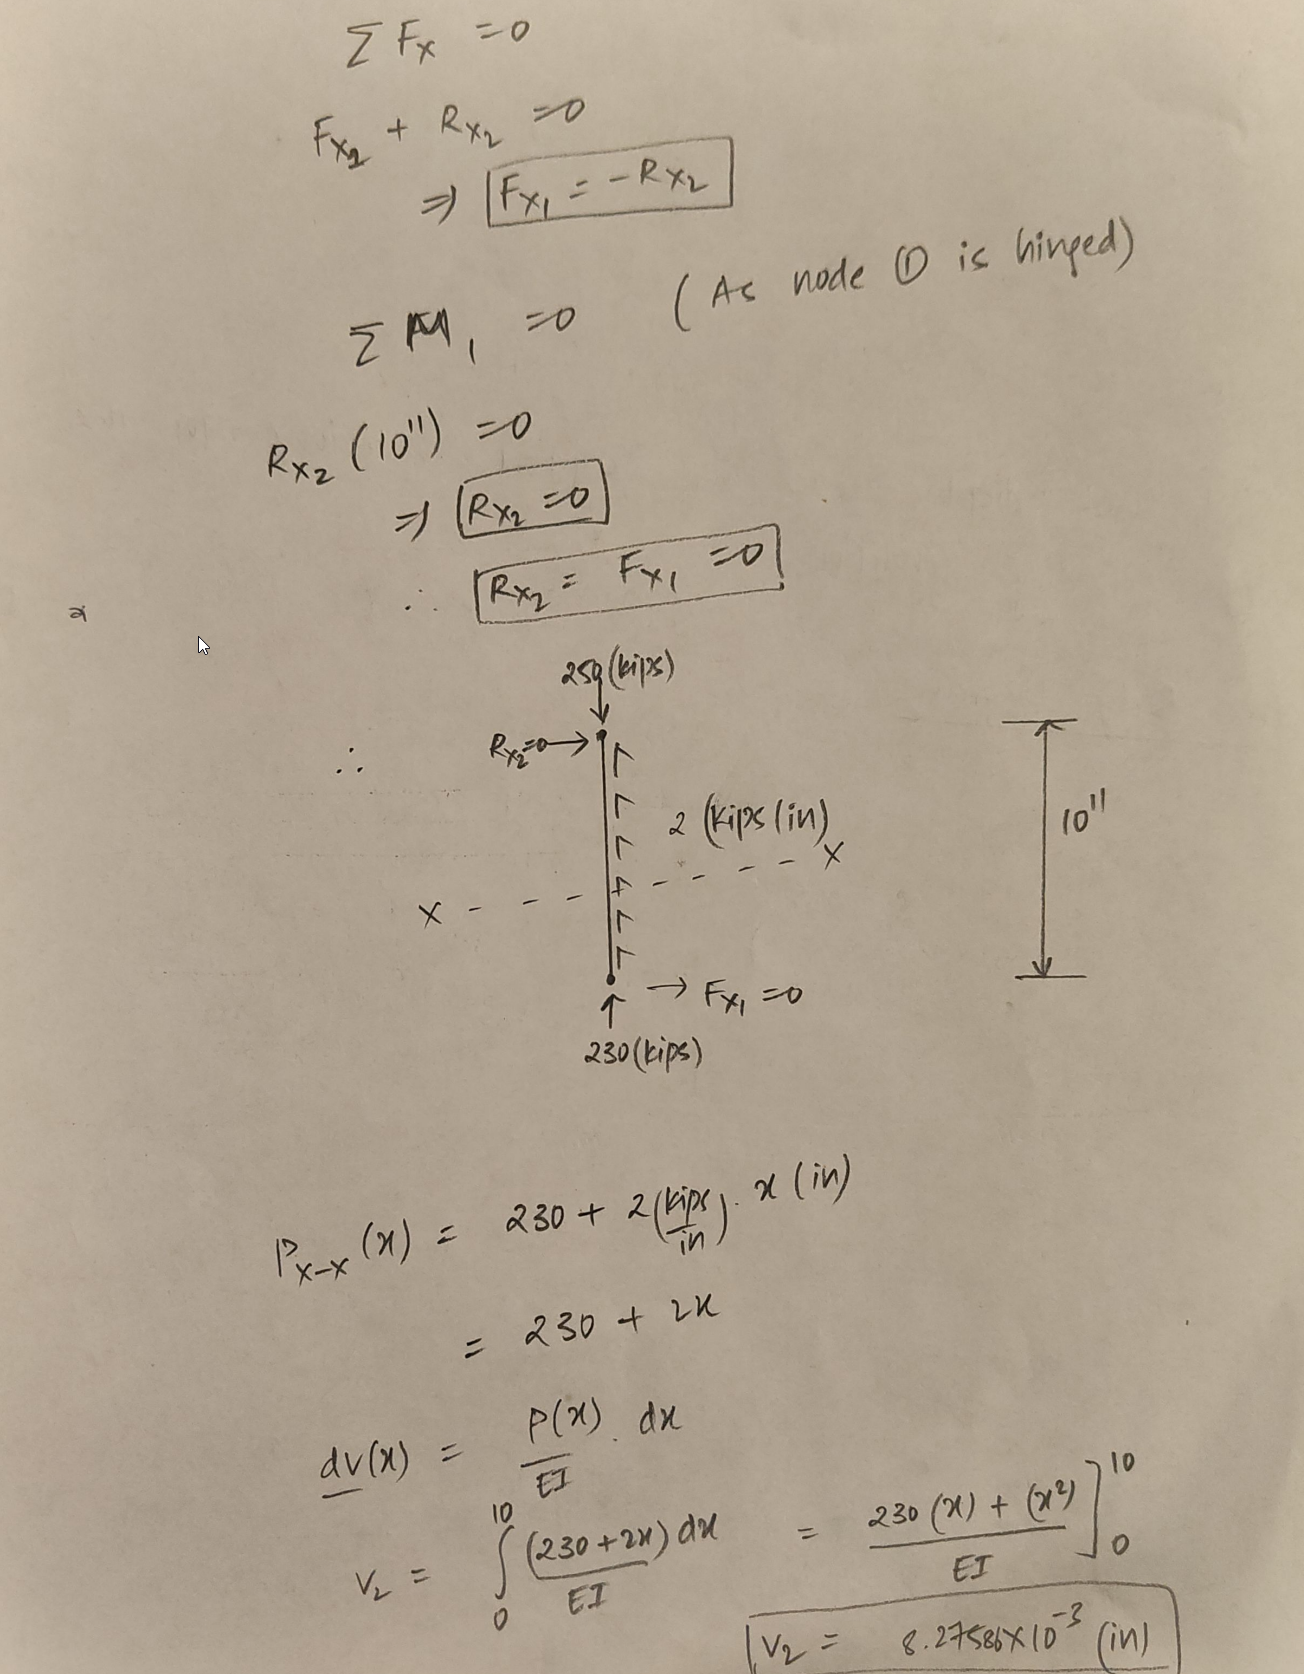 Σ Fx = 0
Fx2 + Rx2 = 0
⇒ Fx1 = -Rx2
Σ M1 = 0 (As node ① is hinged)
Rx2 (10") = 0
⇒ Rx2 = 0
∴ Rx2 = Fx1 = 0
250 (kips)
∴ Rx2=0 →
2 (kips/in)
10"
X - - - - - - X
→ Fx1 = 0
230 (kips)
Px-x (x) = 230 + 2 (kips/in) . x (in)
= 230 + 2x
dv(x) = P(x)/EI . dx
v2 = ∫₀¹⁰ (230+2x)/EI dx = 230(x) + (x²)/EI ]₀¹⁰
v2 = 8.27586 × 10⁻³ (in)